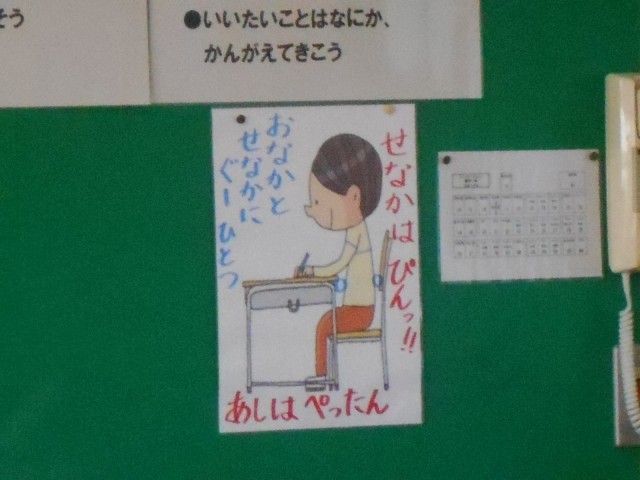 そう
●いいたいことはなにか、
かんがえてきこう
せなかは ぴんっ!!
おなかと
せなかに
ぐー ひとつ
あしは ぺったん